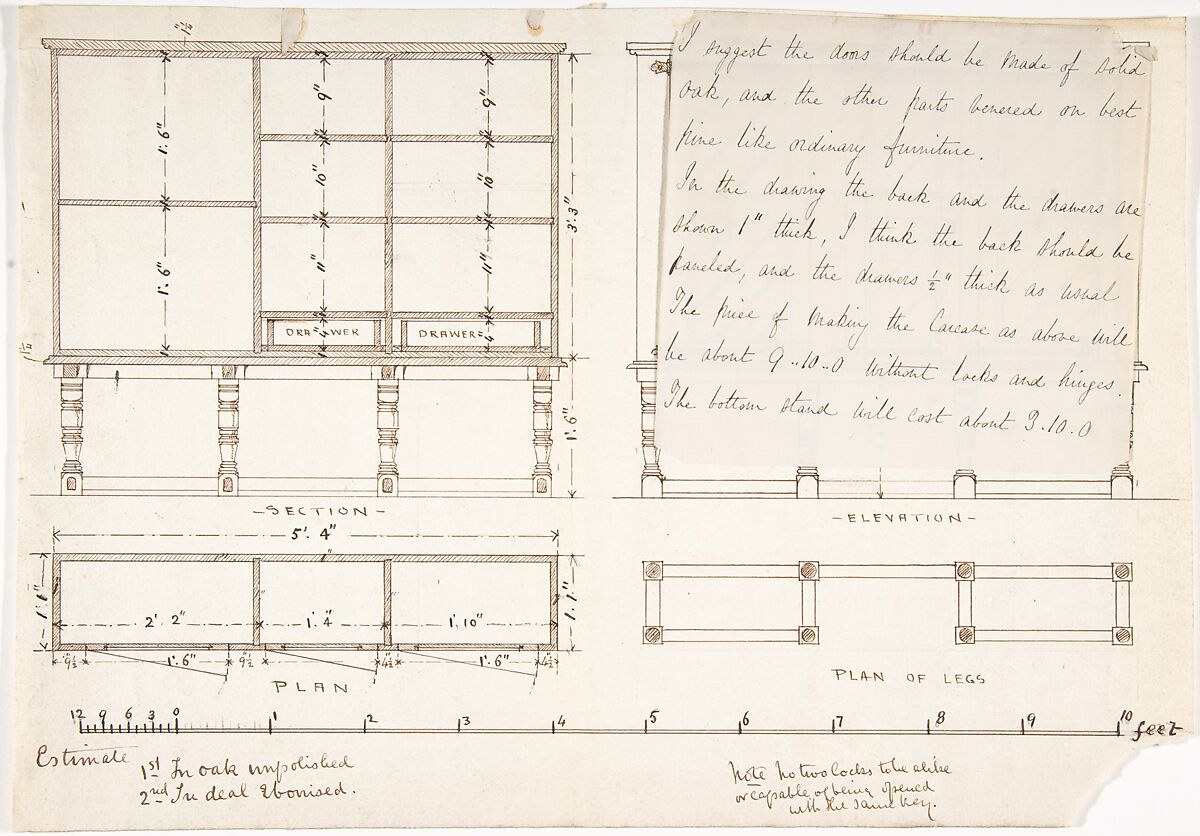 1¼"
1'. 6"
9"
9"
10"
10"
1'. 6"
11"
11"
3'. 3"
DRAWER
DRAWER
4"
4"
1¼"
1'. 6"
– SECTION –
5'. 4"
1"
1'. 1"
1'. 1"
2'. 2"
1'. 4"
1'. 10"
9½"
1'. 6"
9½"
4½"
1'. 6"
4½"
PLAN
I suggest the doors should be made of solid
oak, and the other parts venered on best
pine like ordinary furniture.
In the drawing the back and the drawers are
shown 1" thick, I think the back should be
paneled, and the drawers ½" thick as usual
The price of making the Carcase as above will
be about 9..10..0 without locks and hinges.
The bottom stand will cost about 3.10.0
– ELEVATION –
PLAN OF LEGS
12 9 6 3 0 1 2 3 4 5 6 7 8 9 10 feet
Estimate
1st In oak unpolished
2nd In deal Ebonised.
Note No two locks to be alike
or capable of being opened
with the same key.